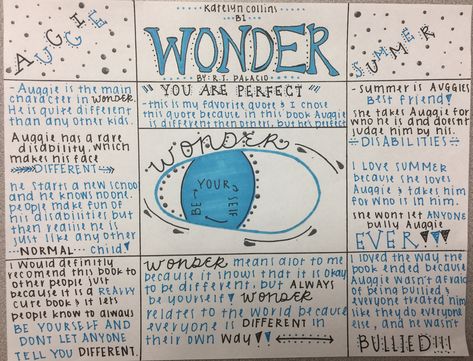 Karelyn Collins
B1
WONDER
BY: R.J. PALACIO
AUGGIE
SUMMER
- Auggie is the main
character in WONDER.
He is quite different
than any other kids.
Auggie has a rare
disability, which
makes his face
DIFFERENT
he starts a new school
and he knows no one.
People make fun of
his disabilities but
then realize he is
just like any other
NORMAL... child
"YOU ARE PERFECT"
-this is my favorite quote & I chose
this quote because in this book Auggie
is different then others, but he's perfect
WONDER
BE YOUR SELF
- Summer is AUGGIES
Best friend
she takes Auggie for
who he is and doesnt
judge him by his.
DISABILITIES
I LOVE SUMMER
because she loves
Auggie & takes him
for who is in him.
she wont let ANYONE
bully Auggie
EVER
I would definitly
recomend this book to
other people just
because it is a REALLY
cute book & it lets
people know to always
BE YOURSELF AND
DONT LET ANYONE
TELL YOU DIFFERENT.
WONDER means alot to me
because it shows that it is okay
to be different, but ALWAYS
be yourself WONDER
relates to the world because
everyone is DIFFERENT in
their own way
I loved the way the
book ended because
Auggie wasnt afraid
of being bullied &
everyone treated him
like they do everyone
else, and he wasn't
BULLIED!!!